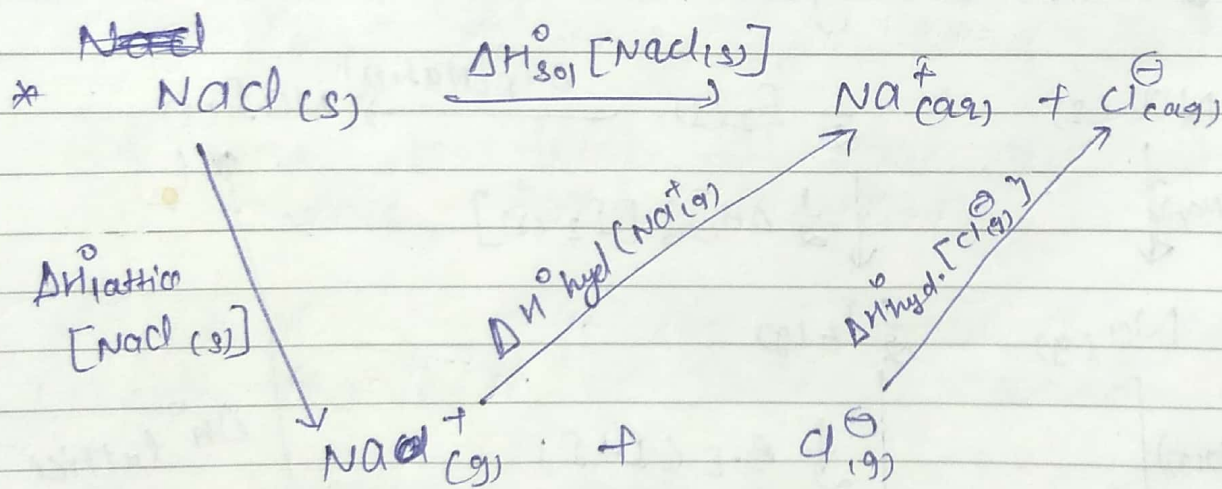 * NaCl (s) ΔH°sol [NaCl(s)] → Na⁺(aq) + Cl⊖(aq)
ΔH°lattice
[NaCl (s)]
ΔH°hyd (Na⁺(g))
ΔH°hyd. [Cl⊖(g)]
Na⁺(g) + Cl⊖(g)